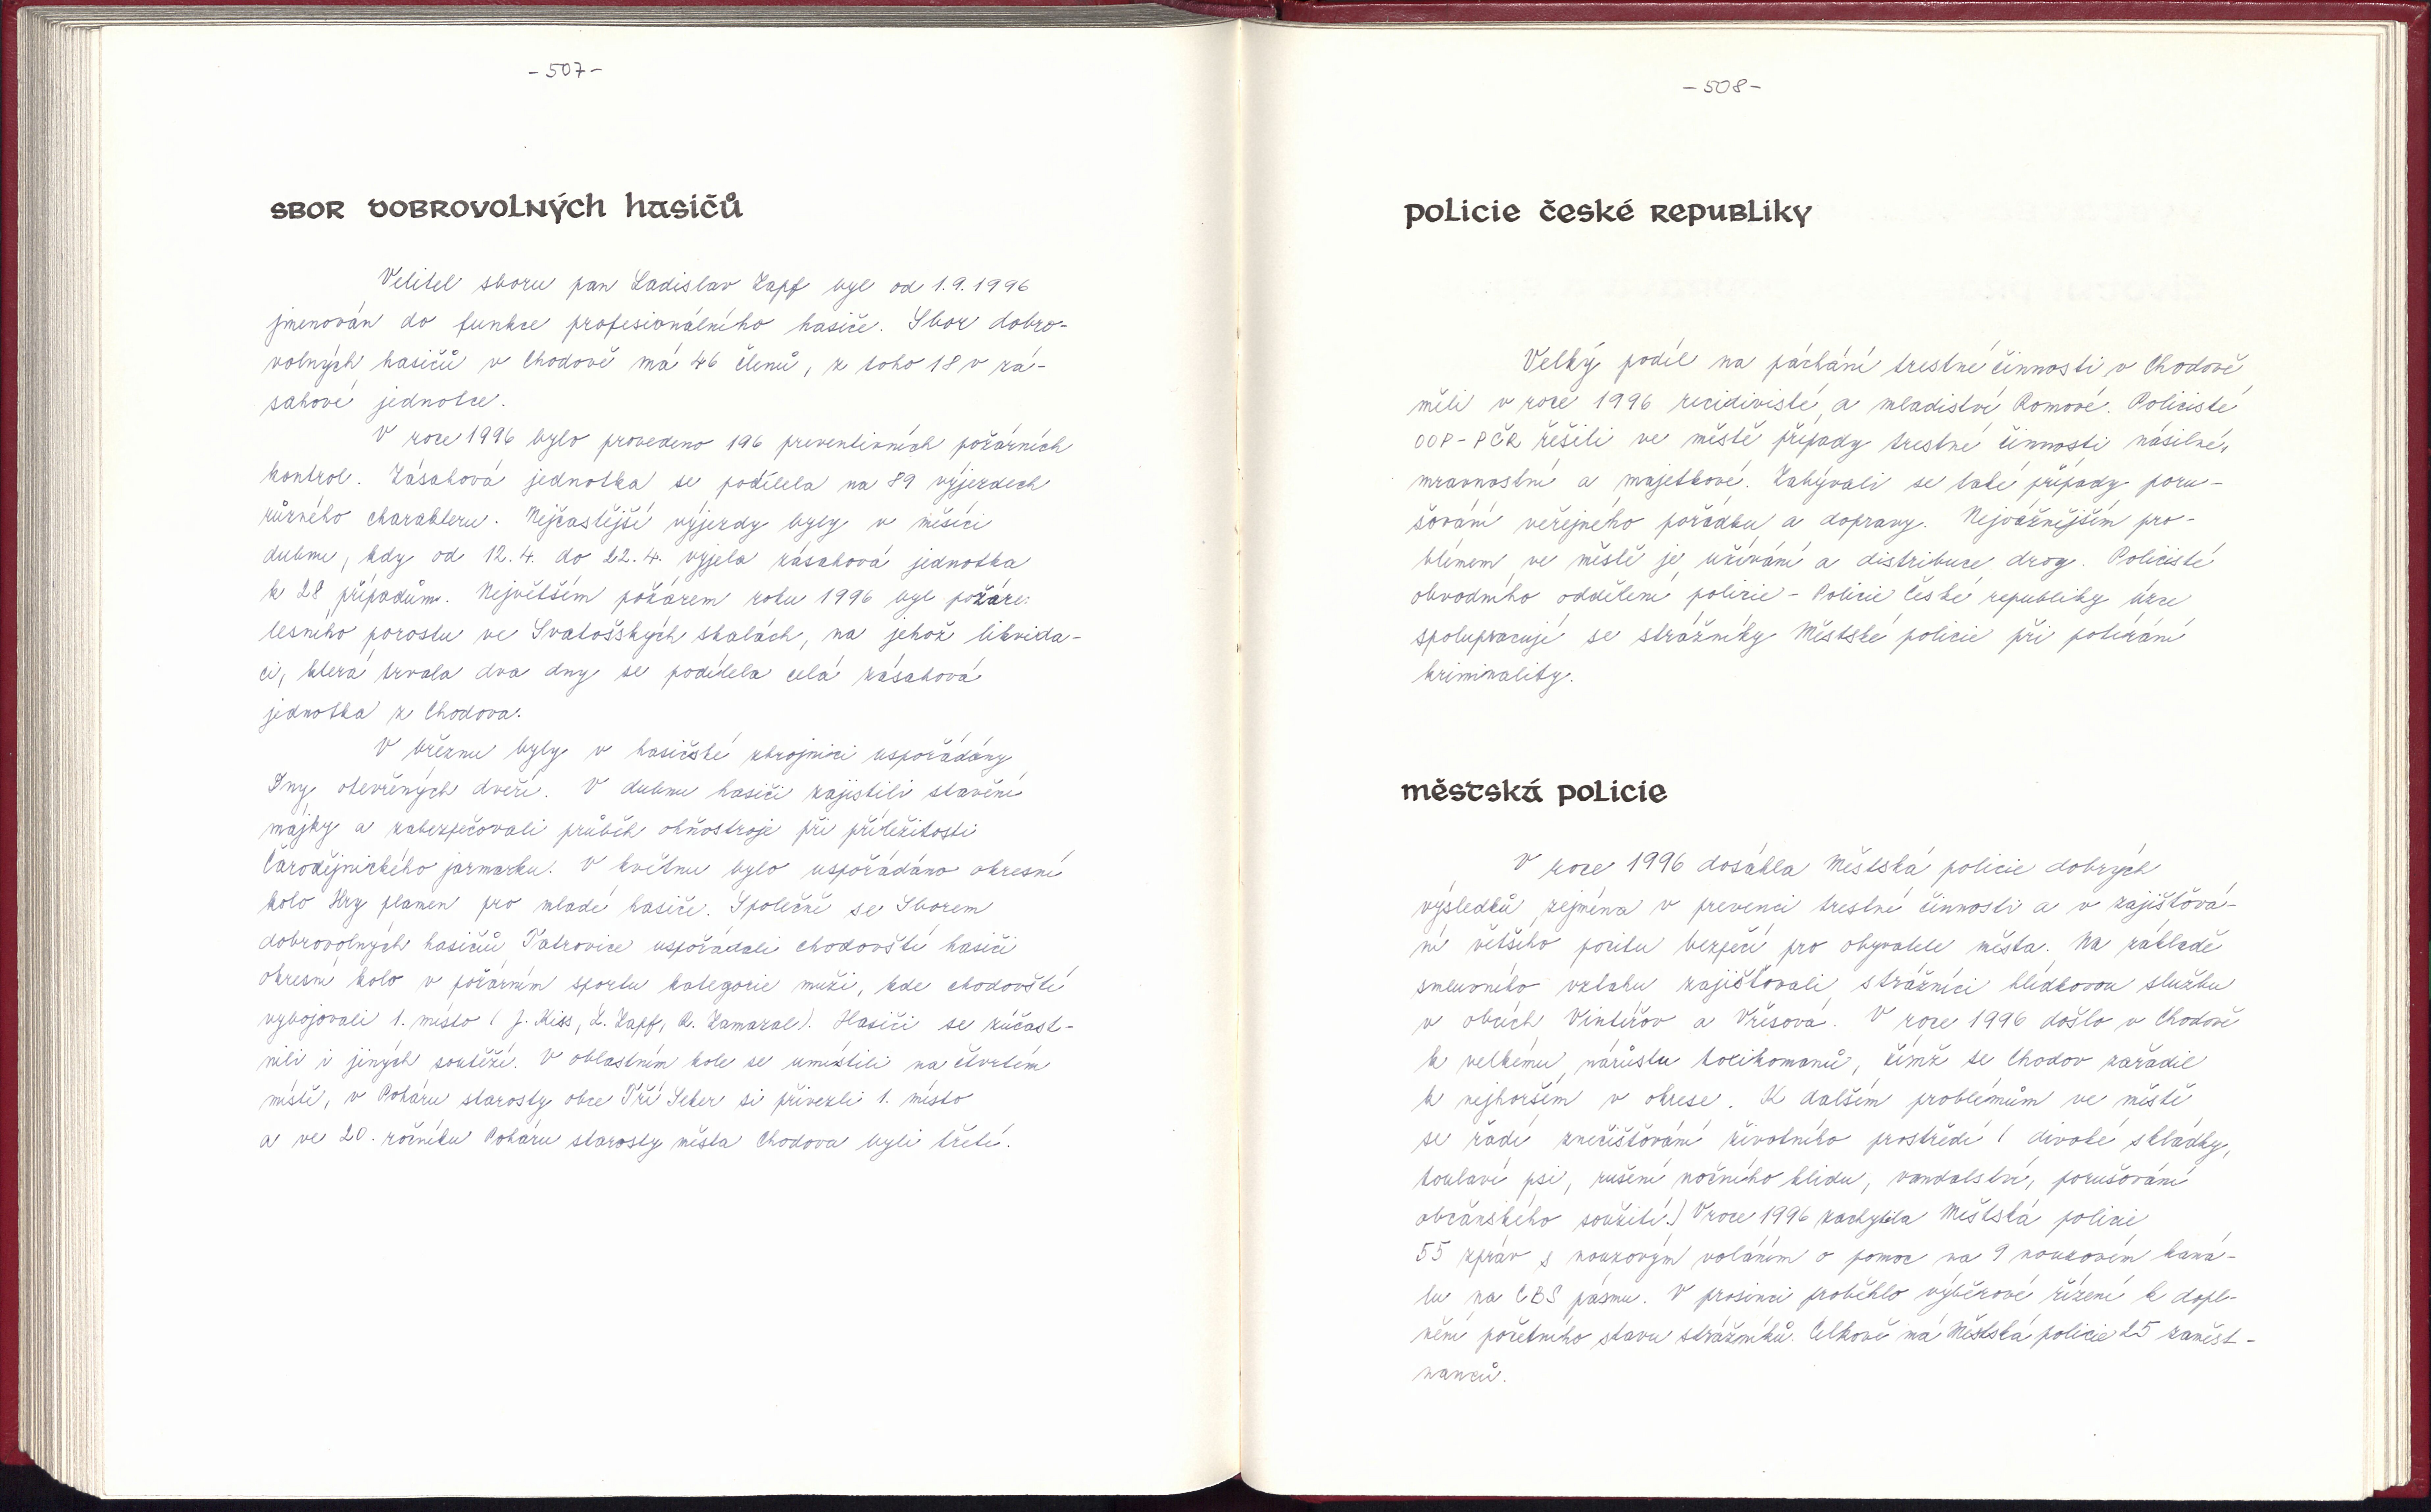 - 507 -
SBOR DOBROVOLNÝCH HASIČŮ
Velitel sboru pan Ladislav Zapf byl od 1.9.1996
jmenován do funkce profesionálního hasiče. Sbor dobro-
volných hasičů v Chodově má 46 členů, z toho 18 v zá-
sahové jednotce.
V roce 1996 bylo provedeno 196 preventivních požárních
kontrol. Zásahová jednotka se podílela na 89 výjezdech
různého charakteru. Nejčastější výjezdy byly v měsíci
dubnu, kdy od 12.4. do 22.4. vyjela zásahová jednotka
k 28 případům. Největším požárem roku 1996 byl požár
lesního porostu ve Svatošských skalách, na jehož likvida-
ci, která trvala dva dny se podílela celá zásahová
jednotka z Chodova.
V březnu byly v hasičské zbrojnici uspořádány
Dny otevřených dveří. V dubnu hasiči zajistili stavění
májky a zabezpečovali průběh ohňostroje při příležitosti
Čarodějnického jarmarku. V květnu bylo uspořádáno okresní
kolo Hry plamen pro mladé hasiče. Společně se Sborem
dobrovolných hasičů Tatrovice uspořádali chodovští hasiči
okresní kolo v požárním sportu kategorie muži, kde chodovští
vybojovali 1. místo (J. Kiss, L. Zapf, R. Zamazal). Hasiči se zúčast-
nili i jiných soutěží. V oblastním kole se umístili na čtvrtém
místě, v Poháru starosty obce Tři Seker si přivezli 1. místo
a ve 20. ročníku Poháru starosty města Chodova byli třetí.
- 508 -
POLICIE ČESKÉ REPUBLIKY
Velký podíl na páchání trestné činnosti v Chodově
měli v roce 1996 recidivisté a mladiství Romové. Policisté
OOP - PČR řešili ve městě případy trestné činnosti násilné,
mravnostní a majetkové. Zabývali se také případy poru-
šování veřejného pořádku a dopravy. Nejvážnějším pro-
blémem ve městě je užívání a distribuce drog. Policisté
obvodního oddělení policie - Policie České republiky úzce
spolupracují se strážníky Městské policie při potírání
kriminality.
MĚSTSKÁ POLICIE
V roce 1996 dosáhla Městská policie dobrých
výsledků zejména v prevenci trestné činnosti a v zajišťová-
ní většího pocitu bezpečí pro obyvatele města. Na základě
smluvního vztahu zajišťovali strážníci hlídkovou službu
v obcích Vintířov a Vřesová. V roce 1996 došlo v Chodově
k velkému nárůstu toxikomanů, čímž se Chodov zařadil
k nejhorším v okrese. K dalším problémům ve městě
se řadí znečišťování životního prostředí (divoké skládky,
toulaví psi, rušení nočního klidu, vandalství, porušování
občanského soužití.) V roce 1996 zachytila Městská policie
55 zpráv s nouzovým voláním o pomoc na 9 nouzovém kaná-
lu na CBS pásmu. V prosinci proběhlo výběrové řízení k dopl-
nění početního stavu strážníků. Celkově má Městská policie 25 zaměst-
nanců.